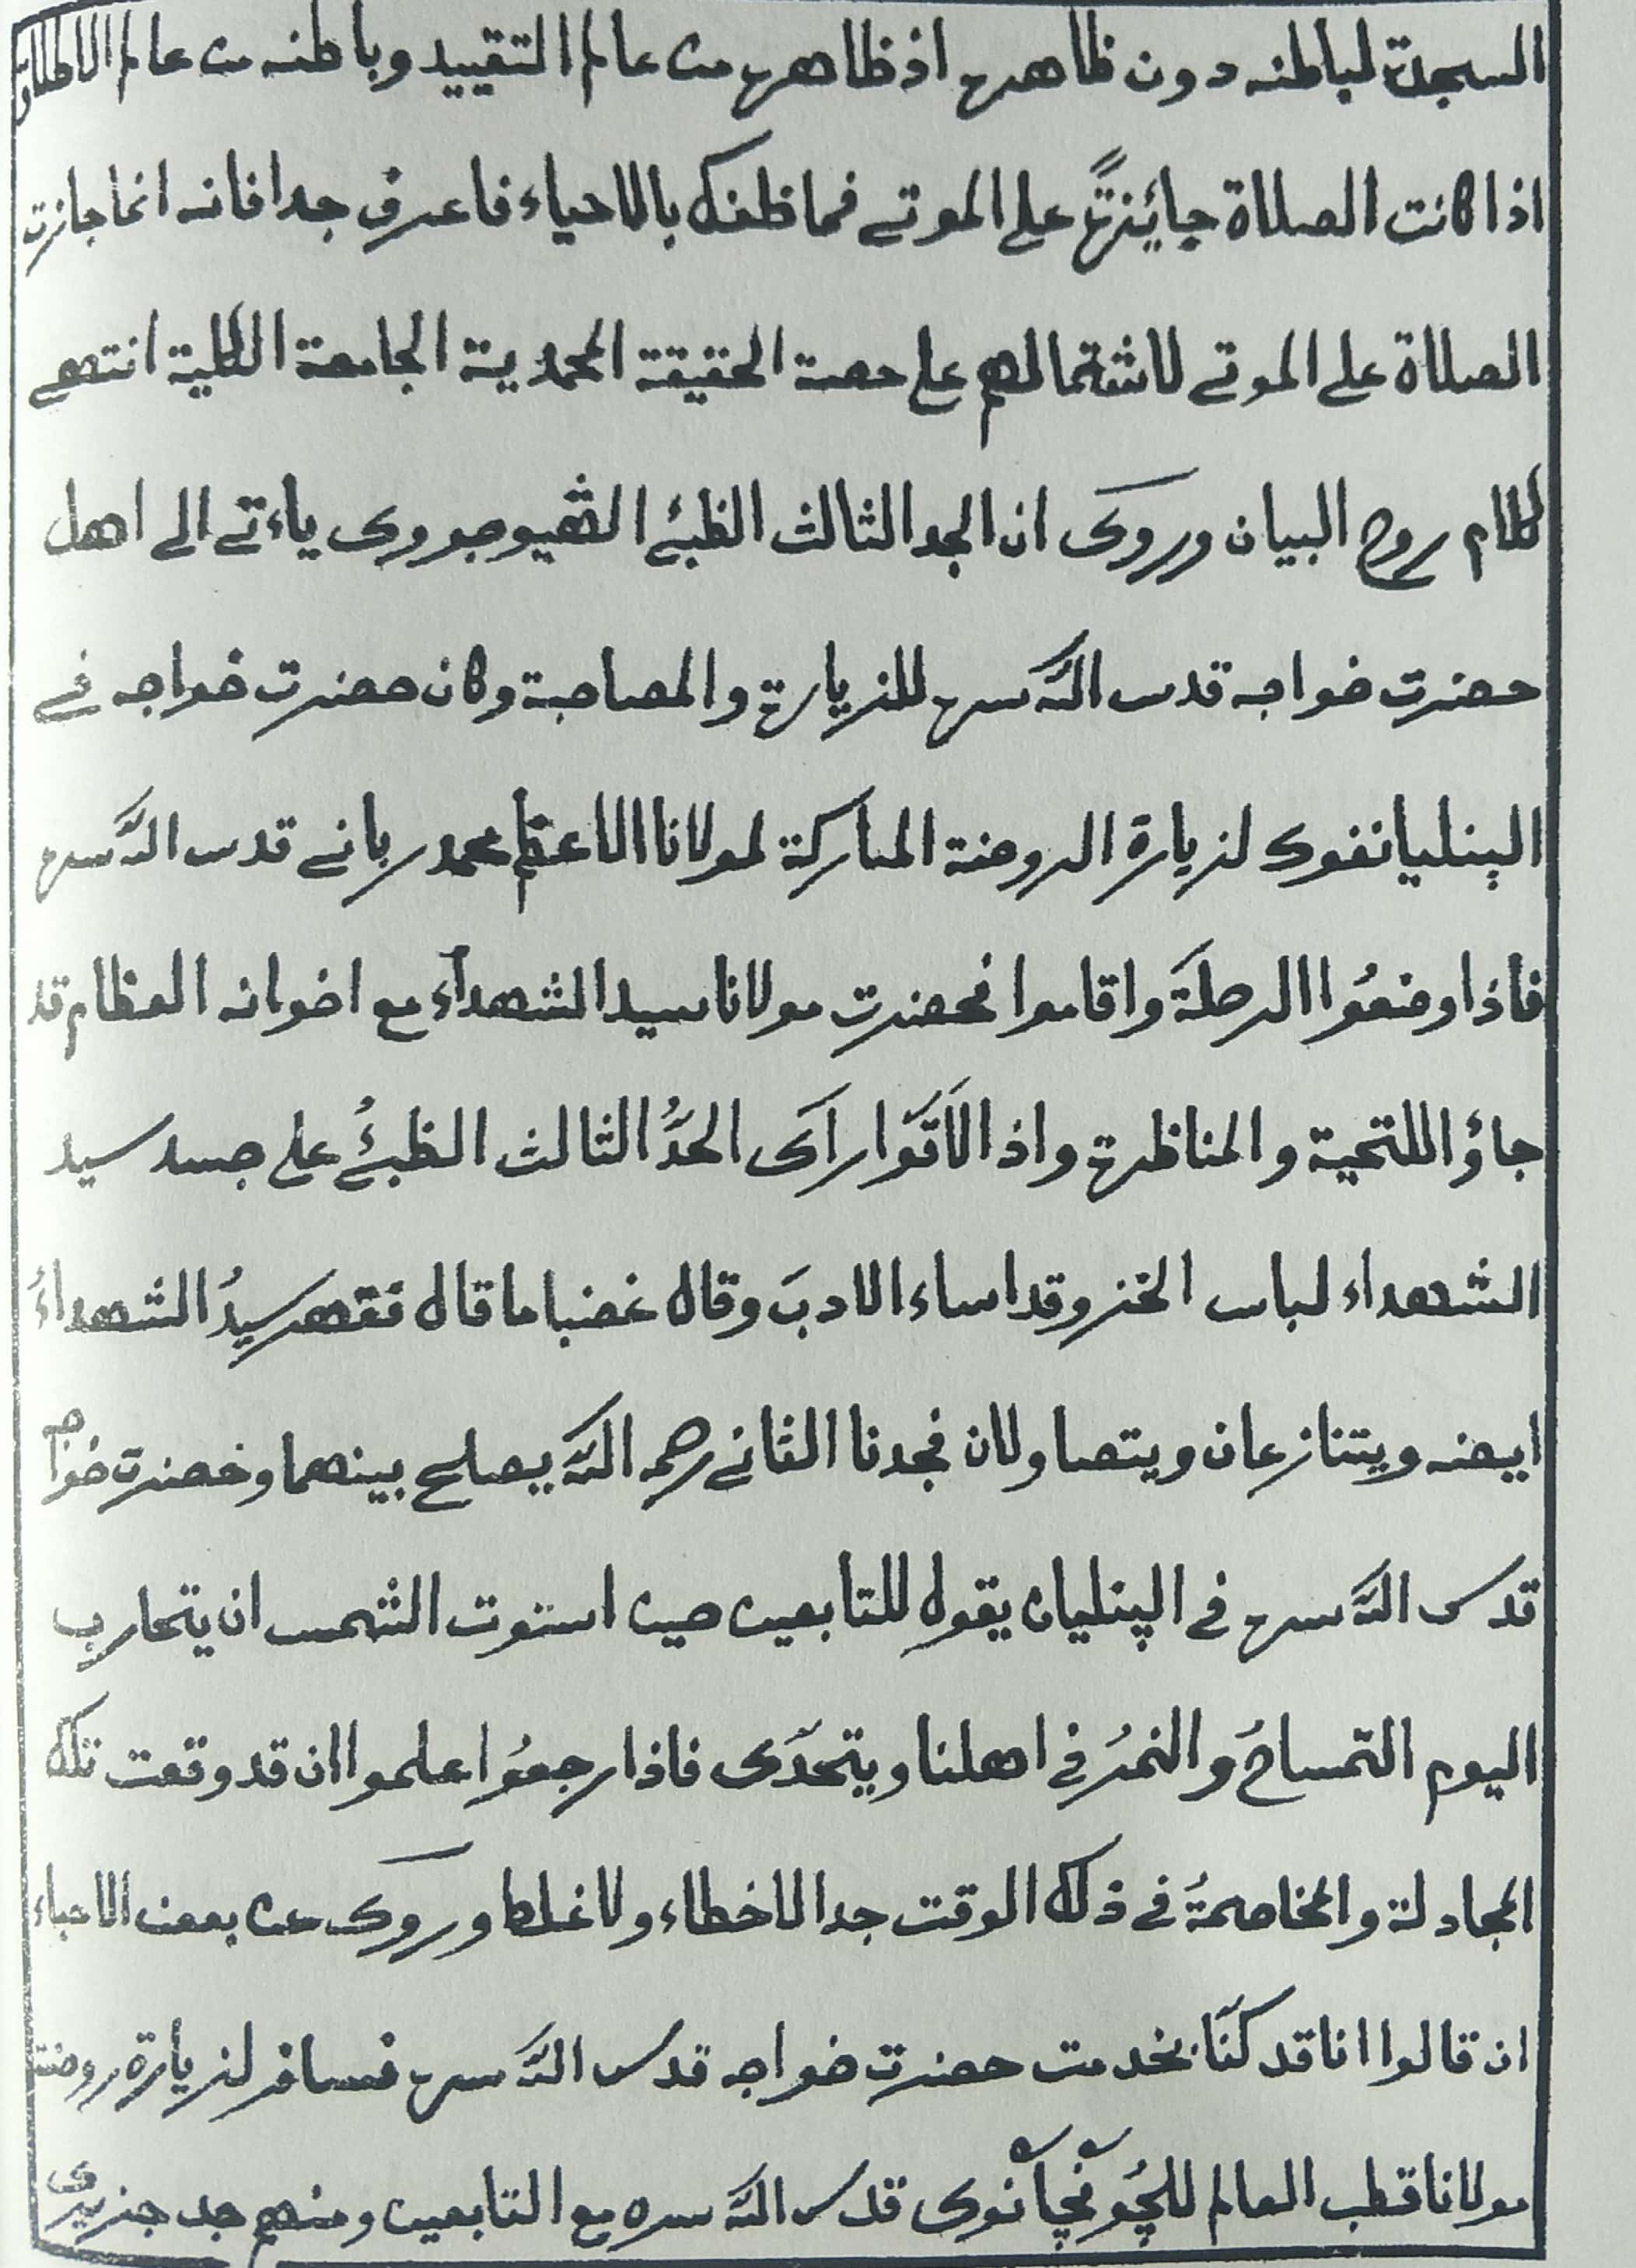 السجدة لباطنه دون ظاهره اذ ظاهره من عالم التقييد وباطنه من عالم الاطلاق
اذا كانت الصلاة جايئزةً على الموتے فما ظنك بالاحياء فاعرف جدا فانه انما جازت
الصلاة على الموتے لاشتمالهم على حصة الحقيقة المحمدية الجامعة الكلية انتهے
كلام روح البيان وروى ان الجد الثالث الظبئے ياءتے الى اهل
حضرت خواجه قدس الله سره للزيارة والمصاحبة وكان حضرت خواجه فے
الپنليانفوى لزيارة الروضة المباركة لمولانا الاعظم محمد ربانے قدس الله سره
فاذا وضعُوا الرحلَة واقاموا فحضرت مولانا سيد الشهدآء مع اخوانه العظام قد
جاؤ اللتحية والمناظرة واذا لاَقَوا رآى الجدُّ الثالث الظبئُے على جسد سيد
الشهداء لباس الخز وقد اساء الادبَ وقال غضبا ما قال فقهر سيدُ الشهداءُ
ايضه ويتنازعان ويتصاولان فجدنا الثانے رحمه الله يصلح بينهما وحضرت خواجه
قدس الله سره فے الپنليان يقول للتابعين حين استوت الشمس ان يتحارب
اليوم التمساحُ والنمرُ فے اهلنا ويتحدَّى فاذا رجعوُا علموا ان قد وقعت تلك
المجادلة والمخاصمةُ فے ذلك الوقت جدا لا خطاء ولا غلطا وروى عن بعض الاحباء
ان قالوا انا قد كنَّا بخدمت حضرت خواجه قدس الله سره فسافر لزيارة روضة
مولانا قطب العالم قدس الله سره مع التابعين ومنهم جد جزيرى